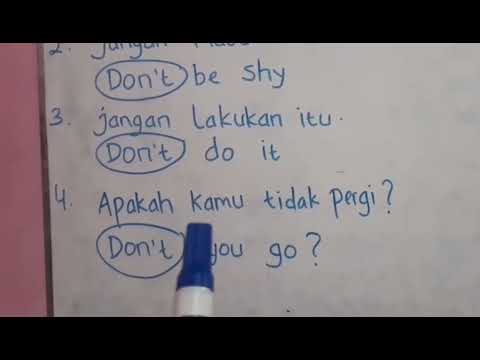 2. jangan
Don't be shy
3. jangan Lakukan itu.
Don't do it
4. Apakah kamu tidak pergi?
Don't you go?